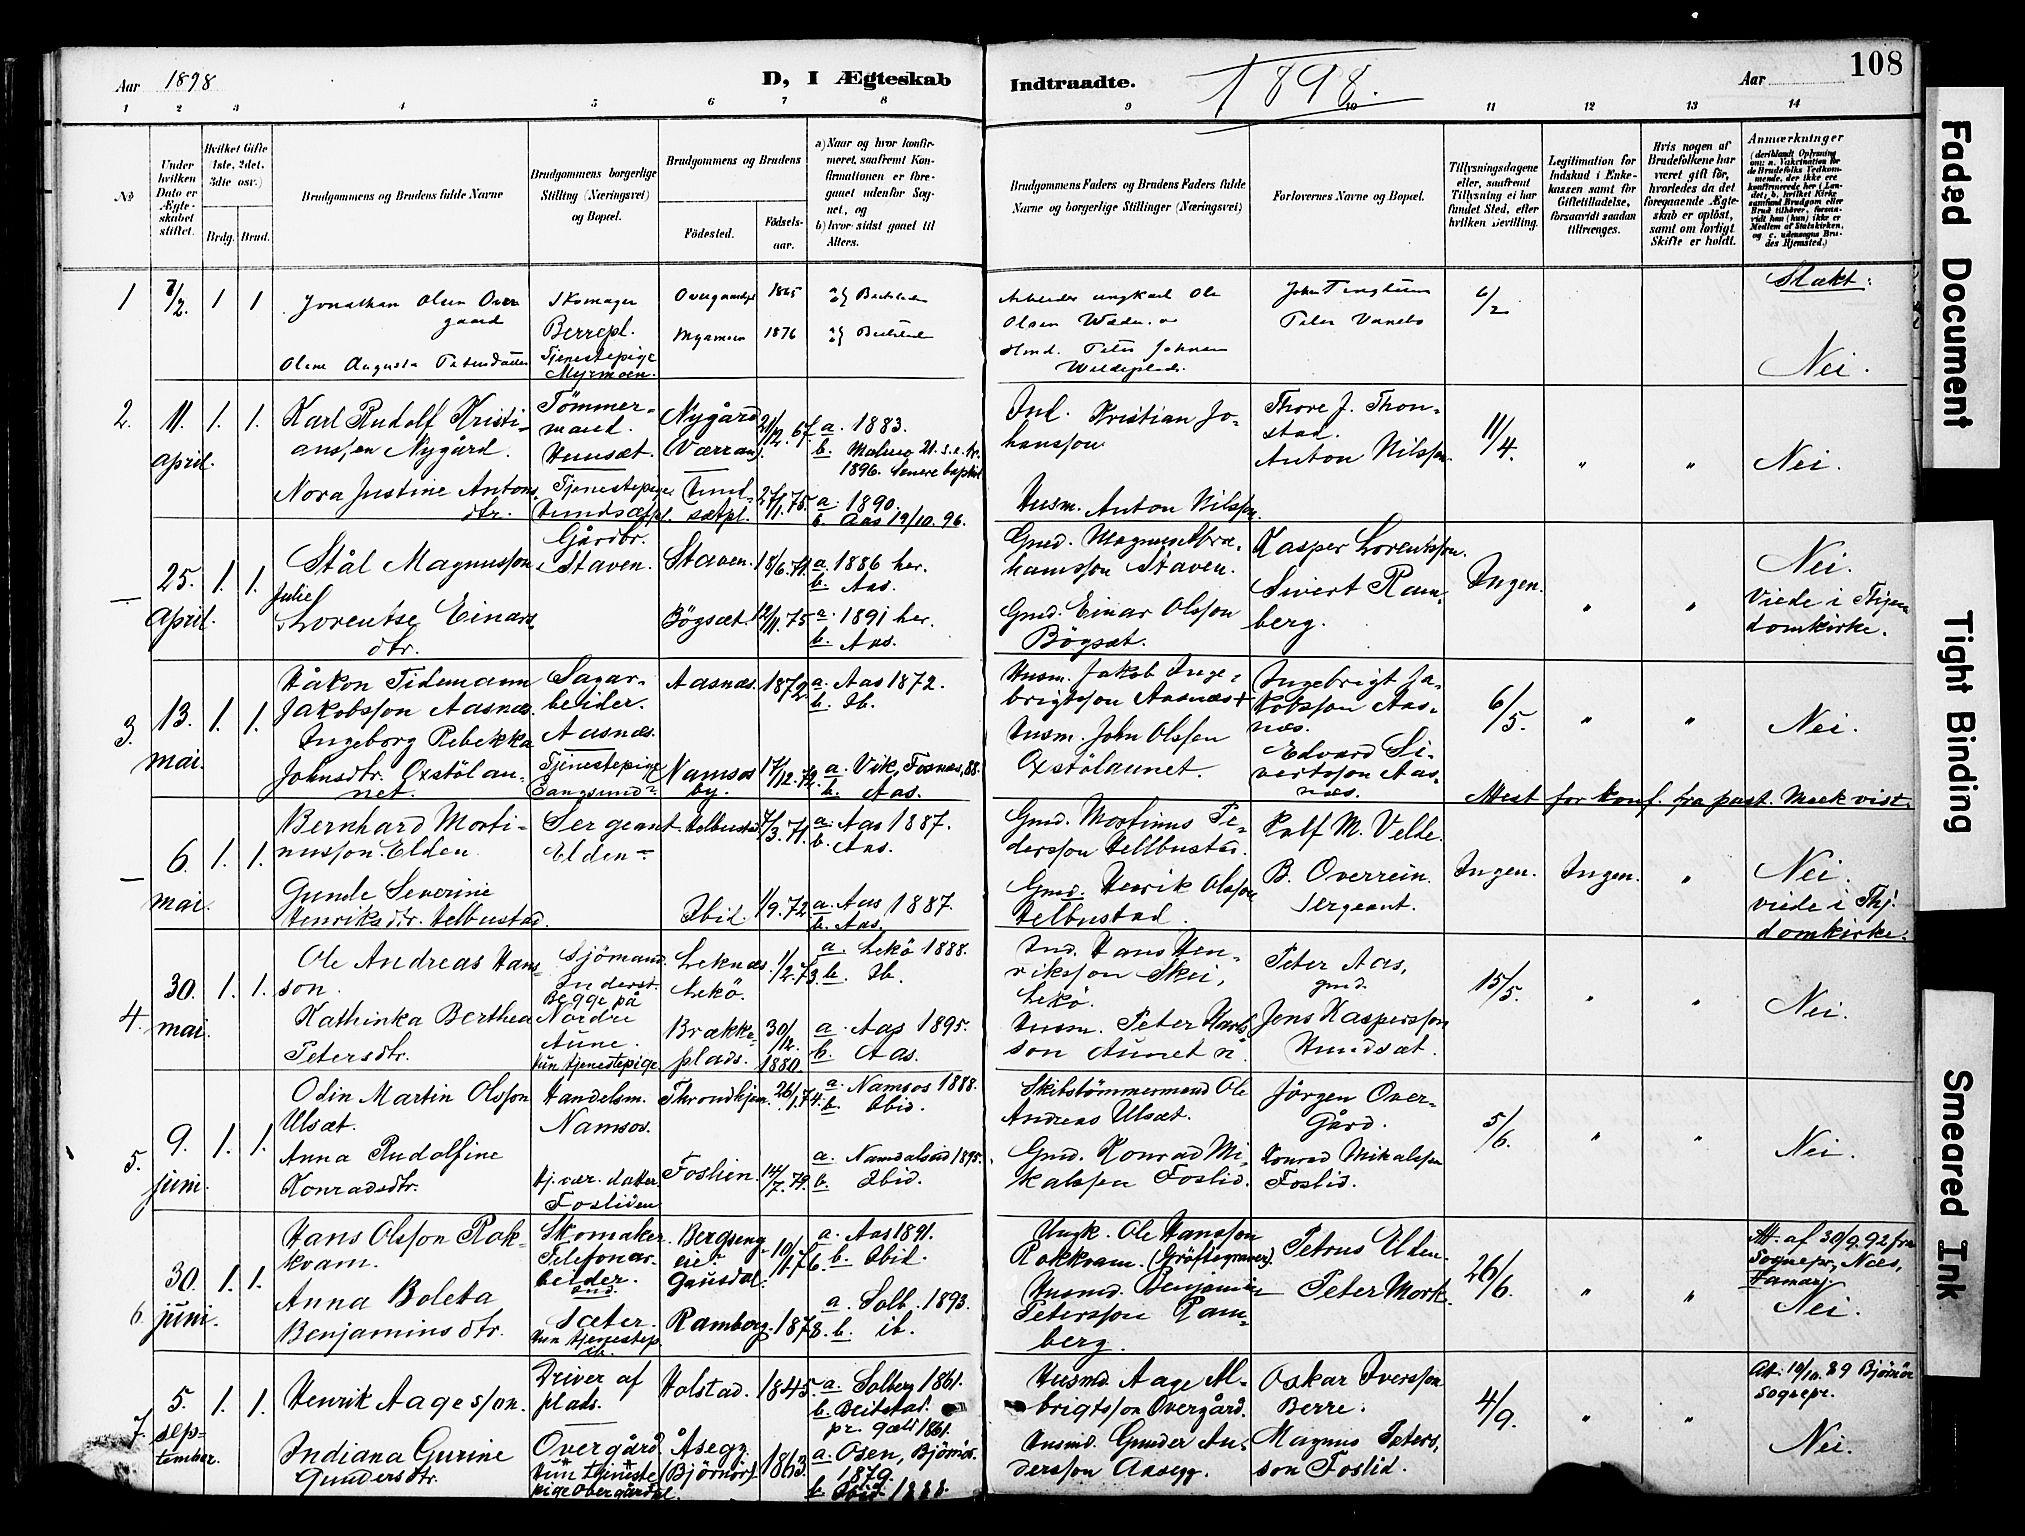 Aar 1898
D, I Ægteskab
Indtraadte.
1898.
Aar
108
1 2 3 4 5 6 7 8 9 10 11 12 13 14
No
Under hvilken Dato er Ægteskabet stiftet.
Hvilket Gifte (1ste, 2det, 3dte osv.)
Brdg. Brud.
Brudgommens og Brudens fulde Navne
Brudgommens borgerlige Stilling (Næringsvei) og Bopæl.
Brudgommens og Brudens
Fødested.
Fødselsaar.
a) Naar og hvor konfirmeret, saafremt Konfirmationen er foregaaet udenfor Sognet, og
b) hvor sidst gaaet til Alters.
Brudgommens Faders og Brudens Faders fulde Navne og borgerlige Stillinger (Næringsvei)
Forlovernes Navne og Bopæl.
Tillysningsdagene eller, saafremt Tillysning ei har fundet Sted, efter hvilken Bevilling.
Legitimation for Indskud i Enkekassen samt for Giftetilladelse, forsaavidt saadan tiltrænges.
Hvis nogen af Brudefolkene har været gift før, hvorledes da det foregaaende Ægteskab er opløst, samt om lovligt Skifte er holdt.
Anmærkninger
1 7/2. 1 1
Jonathan Olsen Overgaard
Skomager Berrepl.
1865
Arbeider ungkarl Ole Olsen
Peter
6/2
Slækt:
Olene Augusta Petersdatter
Tjenestepige Myrmoen.
Myrmoen 1876
Hmd. Peter Johnsen
Nei.
2. 11. april. 1. 1.
Karl Rudolf Kristianssen Nygård.
Tømmermand. Hunsæt.
Nygård 21/12. 67.
a. 1883.
b. 1896. Senere baptist
Kristian Johanssøn
Thore J. Thonstad.
Anton Nilsson.
11/4. " " Nei.
Nora Justine Antonsdtr.
Tjenestepige Hundsætpl.
Hundsætpl. 27/1. 75.
a. 1890.
b. Aas 19/10. 96.
Husm. Anton Nilsson.
— 25. April. 1. 1.
Stål Magnusson
Gårdbr. Staven.
Staven. 18/6. 71.
a. 1886 her.
b. Aas.
Gmd. Magnus Abrahamsson Staven.
Kasper Lorentsson.
Sivert Ramberg.
Ingen. " "
Nei.
Viede i Thjem domkirke.
Julie Lorentse Einarsdtr.
Bøgsæt. 12/11. 75
a. 1891 her.
b. Aas.
Gmd. Einar Olsson Bøgsæt.
3. 13. mai. 1. 1.
Håkon Tidemann Jakobsson Aasnæs.
Sagarbeider. Aasnæs.
Aasnæs. 1872
a. Aas 1872.
b. Ib.
Husm. Jakob Ingebrigtsson Aasnæs +
Ingebrigt Jakobsson Aasnæs.
Edvard Sivertsson Aasnæs.
6/5. " " Nei.
Ingeborg Rebekka Johnsdtr. Oxstölaunet.
Tjenestepige Bangsund
Namsos by. 17/12. 72.
a. Vik, Fosnæs, 88.
b. Aas.
Husm. John Olsson Oxstölaunet.
Attest for konf. fra past. Meekvist.
— 6. mai. 1. 1.
Bernhard Mortinusson Elden
Sergeant Elden
Helbustad 7/3. 71.
a. Aas 1887.
b. Aas.
Gmd. Mortinus Pedersson Hellbustad.
Ralf M. Velde.
B. Overrein. Sergeant.
Ingen. Ingen. "
Nei.
viede i Thj. domkirke.
Gunde Severine Henriksdtr. Helbustad.
Ibid. 1/9. 72
a. Aas 1887.
b. Aas.
Gmd. Henrik Olsson Helbustad.
4. 30. mai. 1. 1.
Ole Andreas Hansson.
Sjömand. Inderst. Begge på Nordre Aune.
Leknæs Lekö. 1/2. 73.
a. Lekö 1888.
b. Ib.
Ind. Hans Henriksson Skei, Lekö.
Peter Aas, gmd.
Jens Kaspersson Hundsæt.
15/5. " " Nei.
Kathinka Berthea Petersdtr.
hun tjenestepige.
Brækkeplads. 30/12. 1880.
a. Aas 1895.
b. Aas.
Husm. Peter Karlsson Aunet n.
5. 9. juni. 1. 1.
Odin Martin Olsson Ulsæt.
Handelsm. Namsos.
Throndhjem. 26/1. 74.
a. Namsos 1888.
b. Ibid.
Skibstömmermand Ole Andreas Ulsæt.
Jörgen Overgård.
Konrad Mikalssen Foslid.
5/6. " " Nei.
Anna Rudolfine Konradsdtr.
hj. vær. datter Fosliden
Foslien. 14/7. 79.
a. Namdalseid 1895.
b. Ibid.
Gmd. Konrad Mikalssen Foslid.
6. 30. juni. 1. 1.
Hans Olsson Rokkvam.
Skomaker. Telefonarbeider. Sæter.
Bergseng eie Gausdal. 10/1. 76.
a. Aas 1891.
b. Ibid.
Ungk. Ole Hansson Rokkvam. (Gröftegraver).
Petrus Elden
Peter Mork.
26/6. " "
Att. af 30/9. 92 fra Sognepr. Næs, Hamar.
Nei.
Anna Boleta Benjaminsdtr.
Hun tjenestep. ib.
Ramberg. 1878.
a. Solb. 1893.
b. ib.
Husmd. Benjamin Petersson Ramberg.
7. 5. september. 1. 1.
Henrik Aagesson.
Driver af plads. Overgård
Holstad. 1845.
a. Solberg 1861.
b. Beitstad pr. gæld 1861.
Husmd. Aage Albrigtsson Overgård.
Oskar Iversson Berre.
Magnus Petersson Foslid.
4/9. " "
At. 10/10. 89 Björnör sognepr.
Nei.
Indiana Gurine Gundersdtr.
Hun tjenestepige Overgårdpl.
Åsegg (Björnör). 1863.
a. Osen, Björnör. 1879.
b. Ibid. 1888.
Husmd. Gunder Andersson Aasegg.
Faded Document
Tight Binding
Smeared Ink